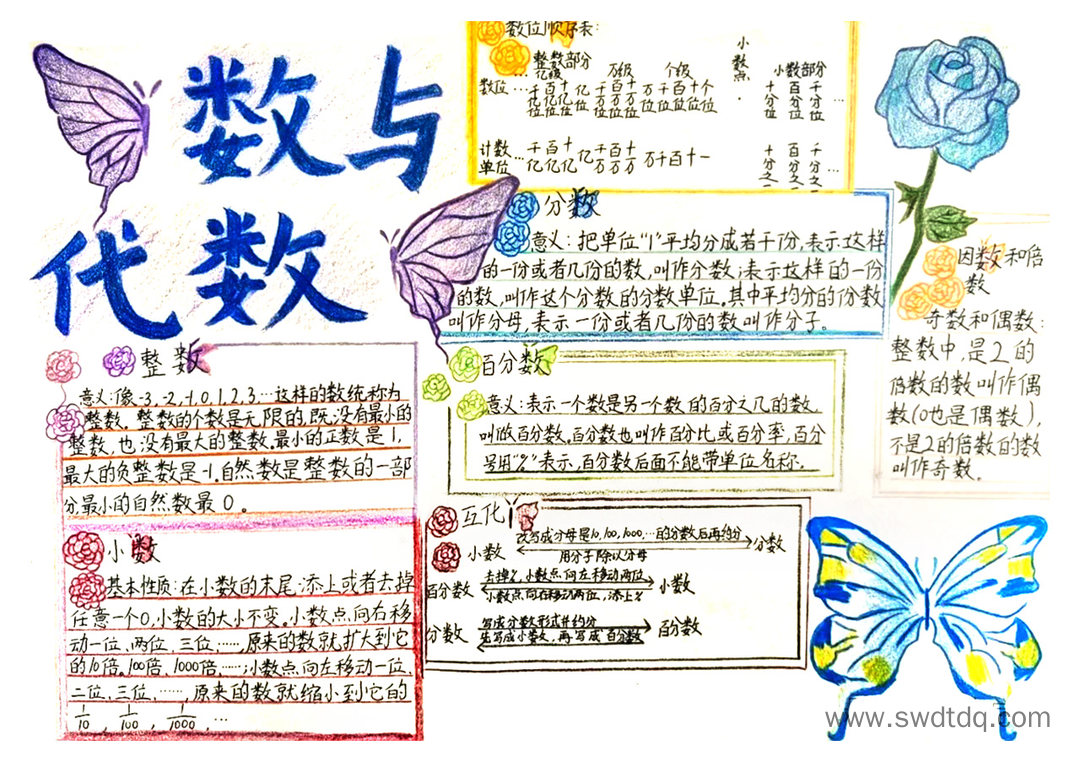 数与
代数
数位顺序表:
整数部分
小数点
小数部分
…亿级 万级 个级
数位…千亿位 百亿位 十亿位 亿位 千万位 百万位 十万位 万位 千位 百位 十位 个位 · 十分位 百分位 千分位 …
计数单位…千亿 百亿 十亿 亿 千万 百万 十万 万 千 百 十 一 十分之一 百分之一 千分之一 …
分数
意义:把单位"1"平均分成若干份,表示这样
的一份或者几份的数,叫作分数;表示这样的一份
的数,叫作这个分数的分数单位。其中平均分的份数
叫作分母,表示一份或者几份的数叫作分子。
因数和倍
数
奇数和偶数:
整数中,是2的
倍数的数叫作偶
数(0也是偶数),
不是2的倍数的数
叫作奇数。
整数
意义:像-3,-2,-1,0,1,2,3…这样的数统称为
整数,整数的个数是无限的,既没有最小的
整数,也没有最大的整数。最小的正数是1,
最大的负整数是-1。自然数是整数的一部
分,最小的自然数最0。
百分数
意义:表示一个数是另一个数的百分之几的数,
叫做百分数。百分数也叫作百分比或百分率,百分
号用"%"表示,百分数后面不能带单位名称。
小数
基本性质:在小数的末尾添上或者去掉
任意一个0,小数的大小不变。小数点向右移
动一位、两位、三位……原来的数就扩大到它
的10倍、100倍、1000倍……小数点向左移动一位、
二位、三位、……,原来的数就缩小到它的
1/10,1/100,1/1000,…
互化
小数 改写成分母是10,100,1000,…的分数后再约分 分数
用分子除以分母
百分数 去掉%,小数点向左移动两位 小数
小数点向右移动两位,添上%
分数 写成分数形式并约分 百分数
先写成小数,再写成百分数
www.swdtdq.com